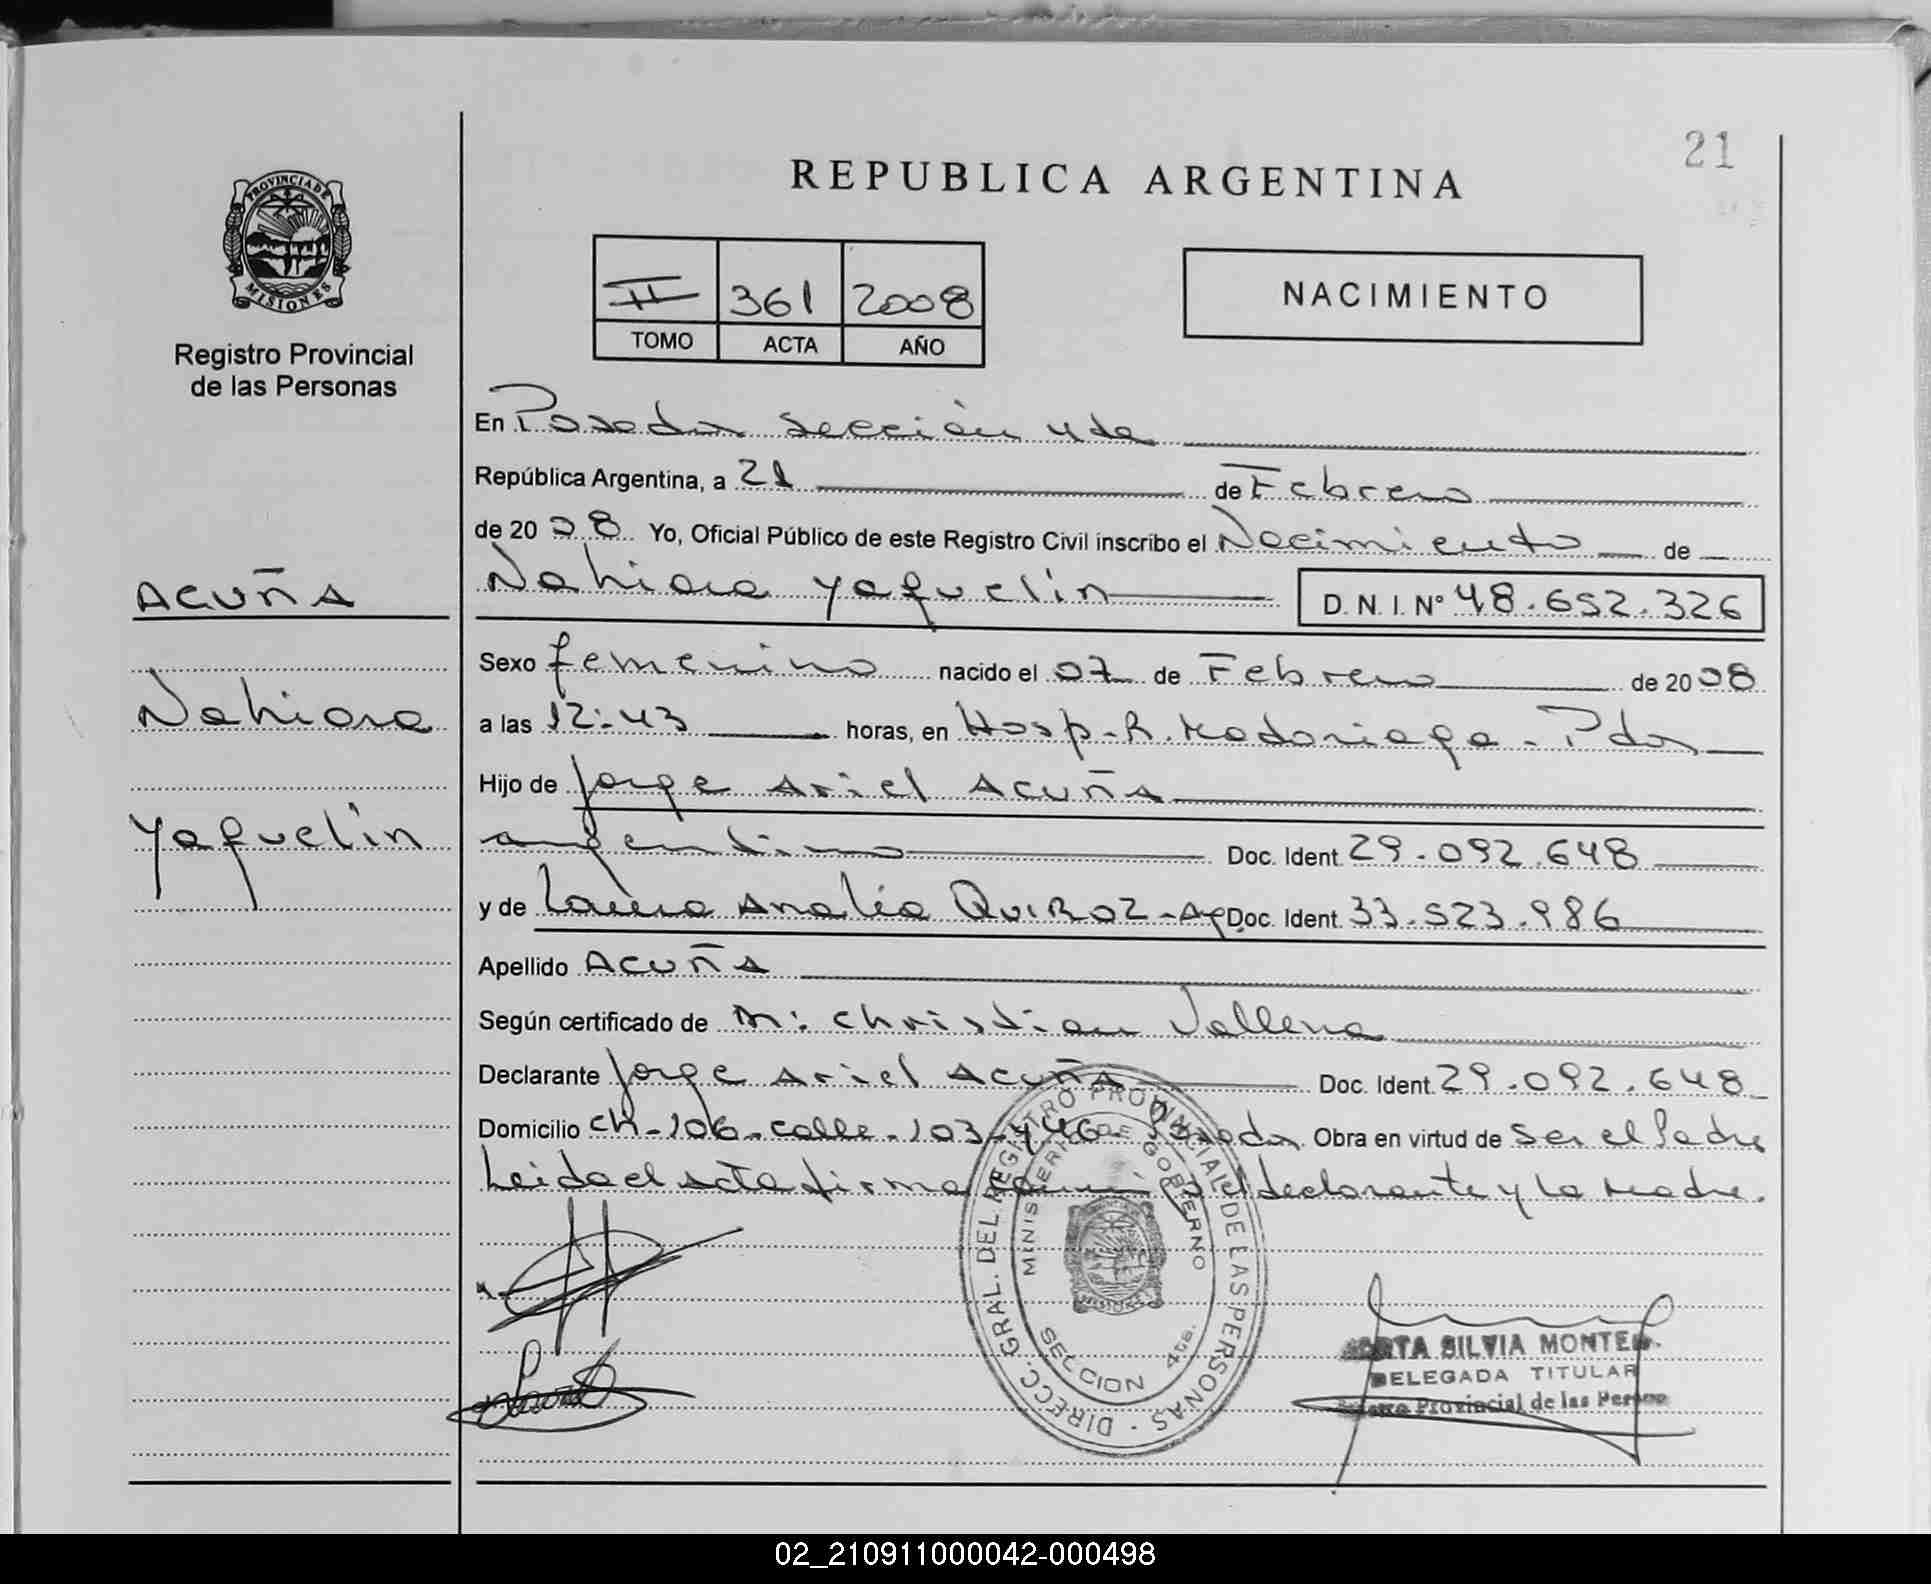 21
REPUBLICA ARGENTINA
PROVINCIA DE
MISIONES
Registro Provincial
de las Personas
II 361 2008
TOMO ACTA AÑO
NACIMIENTO
En Posadas sección 4ta
República Argentina, a 21 de Febrero
de 2008 Yo, Oficial Público de este Registro Civil inscribo el Nacimiento de
Nahiara Yaquelín D. N. I. Nº 48.652.326
ACUÑA
Nahiara
Yaquelín
Sexo femenino nacido el 07 de Febrero de 2008
a las 12:43 horas, en Hosp. R. Madariaga - Pdas
Hijo de Jorge Ariel ACUÑA
argentino Doc. Ident. 29.092.648
y de Analía QUIROZ - Ag Doc. Ident. 33.523.986
Apellido ACUÑA
Según certificado de M: Christian Vallena
Declarante Jorge Ariel Acuña Doc. Ident. 29.092.648
Domicilio CH-106-calle-103- Posadas. Obra en virtud de Ser el Padre
Leida el acta firma el declarante y la Madre.
DIRECC. GRAL. DEL REGISTRO PROVINCIAL DE LAS PERSONAS
MINISTERIO DE GOBIERNO
MISIONES
SECCION 4ta.
SILVIA
DELEGADA TITULAR
Provincial de las
02_210911000042-000498